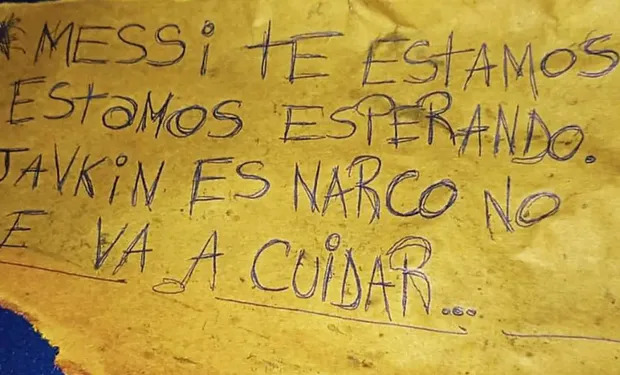 MESSi tE EStAMOS
EStaMOS ESPERANDO.
JAVKiN ES NARCO NO
E VA A CUiDAR...